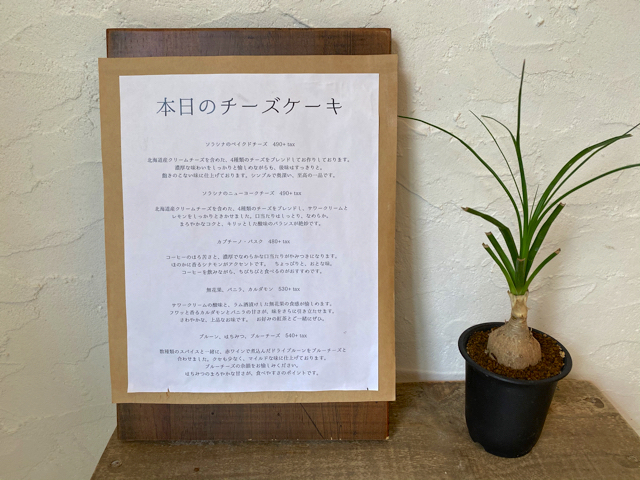 本日のチーズケーキ
ソラシナのベイクドチーズ 490+tax
北海道産クリームチーズを含めた、4種類のチーズをブレンドしてお作りしております。
濃厚な味わいをしっかりと愉しめながらも、後味はすっきりと。
飽きのこない味に仕上げております。シンプルで奥深い、至高の一品です。
ソラシナのニューヨークチーズ 490+tax
北海道産クリームチーズを含めた、4種類のチーズをブレンドし、サワークリームと
レモンをしっかりときかせました。口当たりはしっとり、なめらか。
まろやかなコクと、キリッとした酸味のバランスが絶妙です。
カプチーノ・バスク 480+tax
コーヒーのほろ苦さと、濃厚でなめらかな口当たりがやみつきになります。
ほのかに香るシナモンがアクセントです。 ちょっぴりと、おとな味。
コーヒーを飲みながら、ちびちびと食べるのがおすすめです。
無花果、バニラ、カルダモン 530+tax
サワークリームの酸味と、ラム酒漬けした無花果の食感が愉しめます。
フワッと香るカルダモンとバニラの甘さが、味をさらに引き立たせます。
さわやかな、上品なお味です。 お好みの紅茶とご一緒にぜひ。
プルーン、はちみつ、ブルーチーズ 540+tax
数種類のスパイスと一緒に、赤ワインで煮込んだドライプルーンをブルーチーズと
合わせました。クセも少なく、マイルドな味に仕上げております。
ブルーチーズの余韻をお愉しみください。
はちみつのまろやかな甘さが、食べやすさのポイントです。